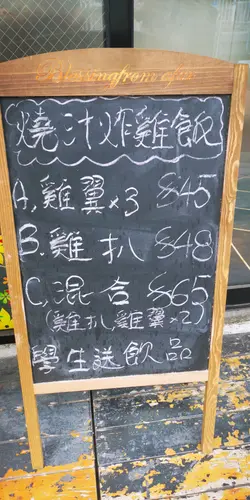 燒汁炸雞飯
A, 雞翼x3 $45
B. 雞扒 $48
C, 混合 $65
(雞扒雞翼x2)
學生送飲品